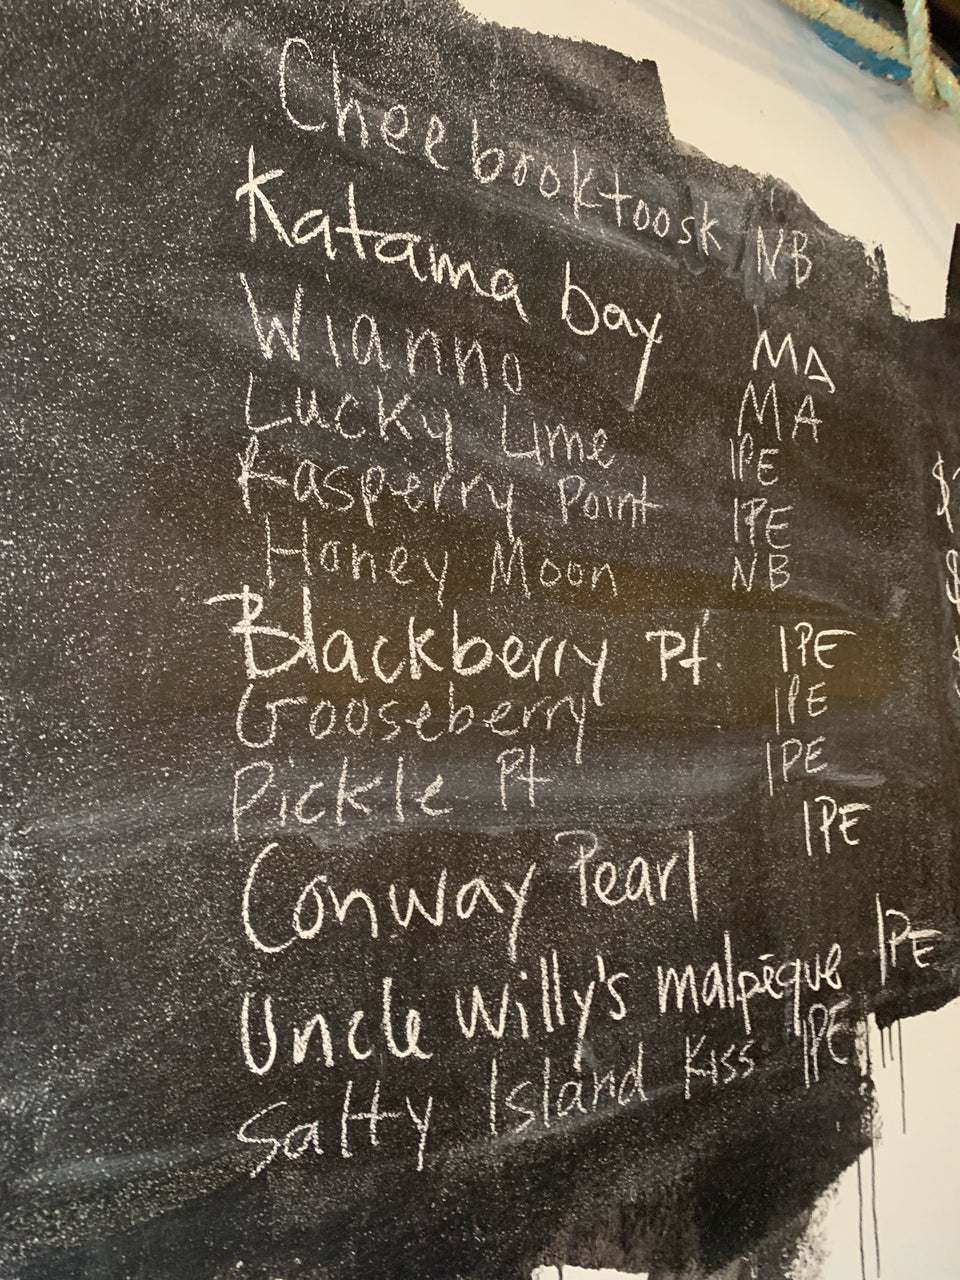 Cheebooktoosk NB
Katama bay MA
Wianno MA
Lucky Lime IPE
Rasperry Point IPE
Honey Moon NB
Blackberry Pt IPE
Gooseberry IPE
Pickle Pt IPE
Conway Pearl IPE
Uncle Willy's malpèque IPE
Salty Island Kiss IPE
$
$